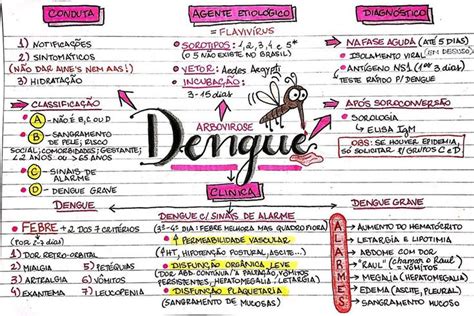 CONDUTA
1) NOTIFICAÇÕES
2) SINTOMÁTICOS
(NÃO DAR AINE'S NEM AAS!)
3) HIDRATAÇÃO
→ CLASSIFICAÇÃO
A - NÃO É B, C, OU D
B - SANGRAMENTO
DE PELE; RISCO
SOCIAL; COMORBIDADES; GESTANTE;
< 2 ANOS OU > 65 ANOS
C - SINAIS DE
ALARME
D - DENGUE GRAVE
AGENTE ETIOLÓGICO
= FLAVIVÍRUS
→ SOROTIPOS: 1, 2, 3, 4 e 5*
(O 5 NÃO EXISTE NO BRASIL)
→ VETOR: Aedes Aegypti
→ INCUBAÇÃO:
3-15 dias
ARBOVIROSE
Dengue
DIAGNÓSTICO
→ NA FASE AGUDA (ATÉ 5 DIAS)
→ ISOLAMENTO VIRAL (EM DESUSO)
→ ANTÍGENO NS1 (1ºs 3 dias)
TESTE RÁPIDO P/ DENGUE
→ APÓS SOROCONVERSÃO
→ SOROLOGIA
↳ ELISA IgM
OBS: SE HOUVER EPIDEMIA,
SÓ SOLICITAR P/ GRUPOS C e D
CLÍNICA
DENGUE
FEBRE + 2 DOS 7 CRITÉRIOS
(POR 2-7 dias)
1) DOR RETRO-ORBITAL
2) MIALGIA
3) ARTRALGIA
4) EXANTEMA
5) PETÉQUIAS
6) VÔMITOS
7) LEUCOPENIA
DENGUE C/ SINAIS DE ALARME
(3º-4º dia) FEBRE MELHORA MAS QUADRO PIORA)
↑ PERMEABILIDADE VASCULAR
(↑HT, HIPOTENSÃO POSTURAL, ASCITE...)
→ DISFUNÇÃO ORGÂNICA LEVE
(DOR ABD. CONTÍNUA / À PALPAÇÃO, VÔMITOS
PERSISTENTES, HEPATOMEGALIA, LETARGIA)
→ DISFUNÇÃO PLAQUETÁRIA
(SANGRAMENTO DE MUCOSAS)
DENGUE GRAVE
ALARMES
→ AUMENTO DO HEMATÓCRITO
→ LETARGIA E LIPOTIMIA
→ ABDOME COM DOR
→ "RAUL" (chamar o Raul
= VÔMITOS)
→ MEGALIA (HEPATOMEGALIA)
→ EDEMA (ASCITE, PLEURAL)
→ SANGRAMENTO MUCOSO